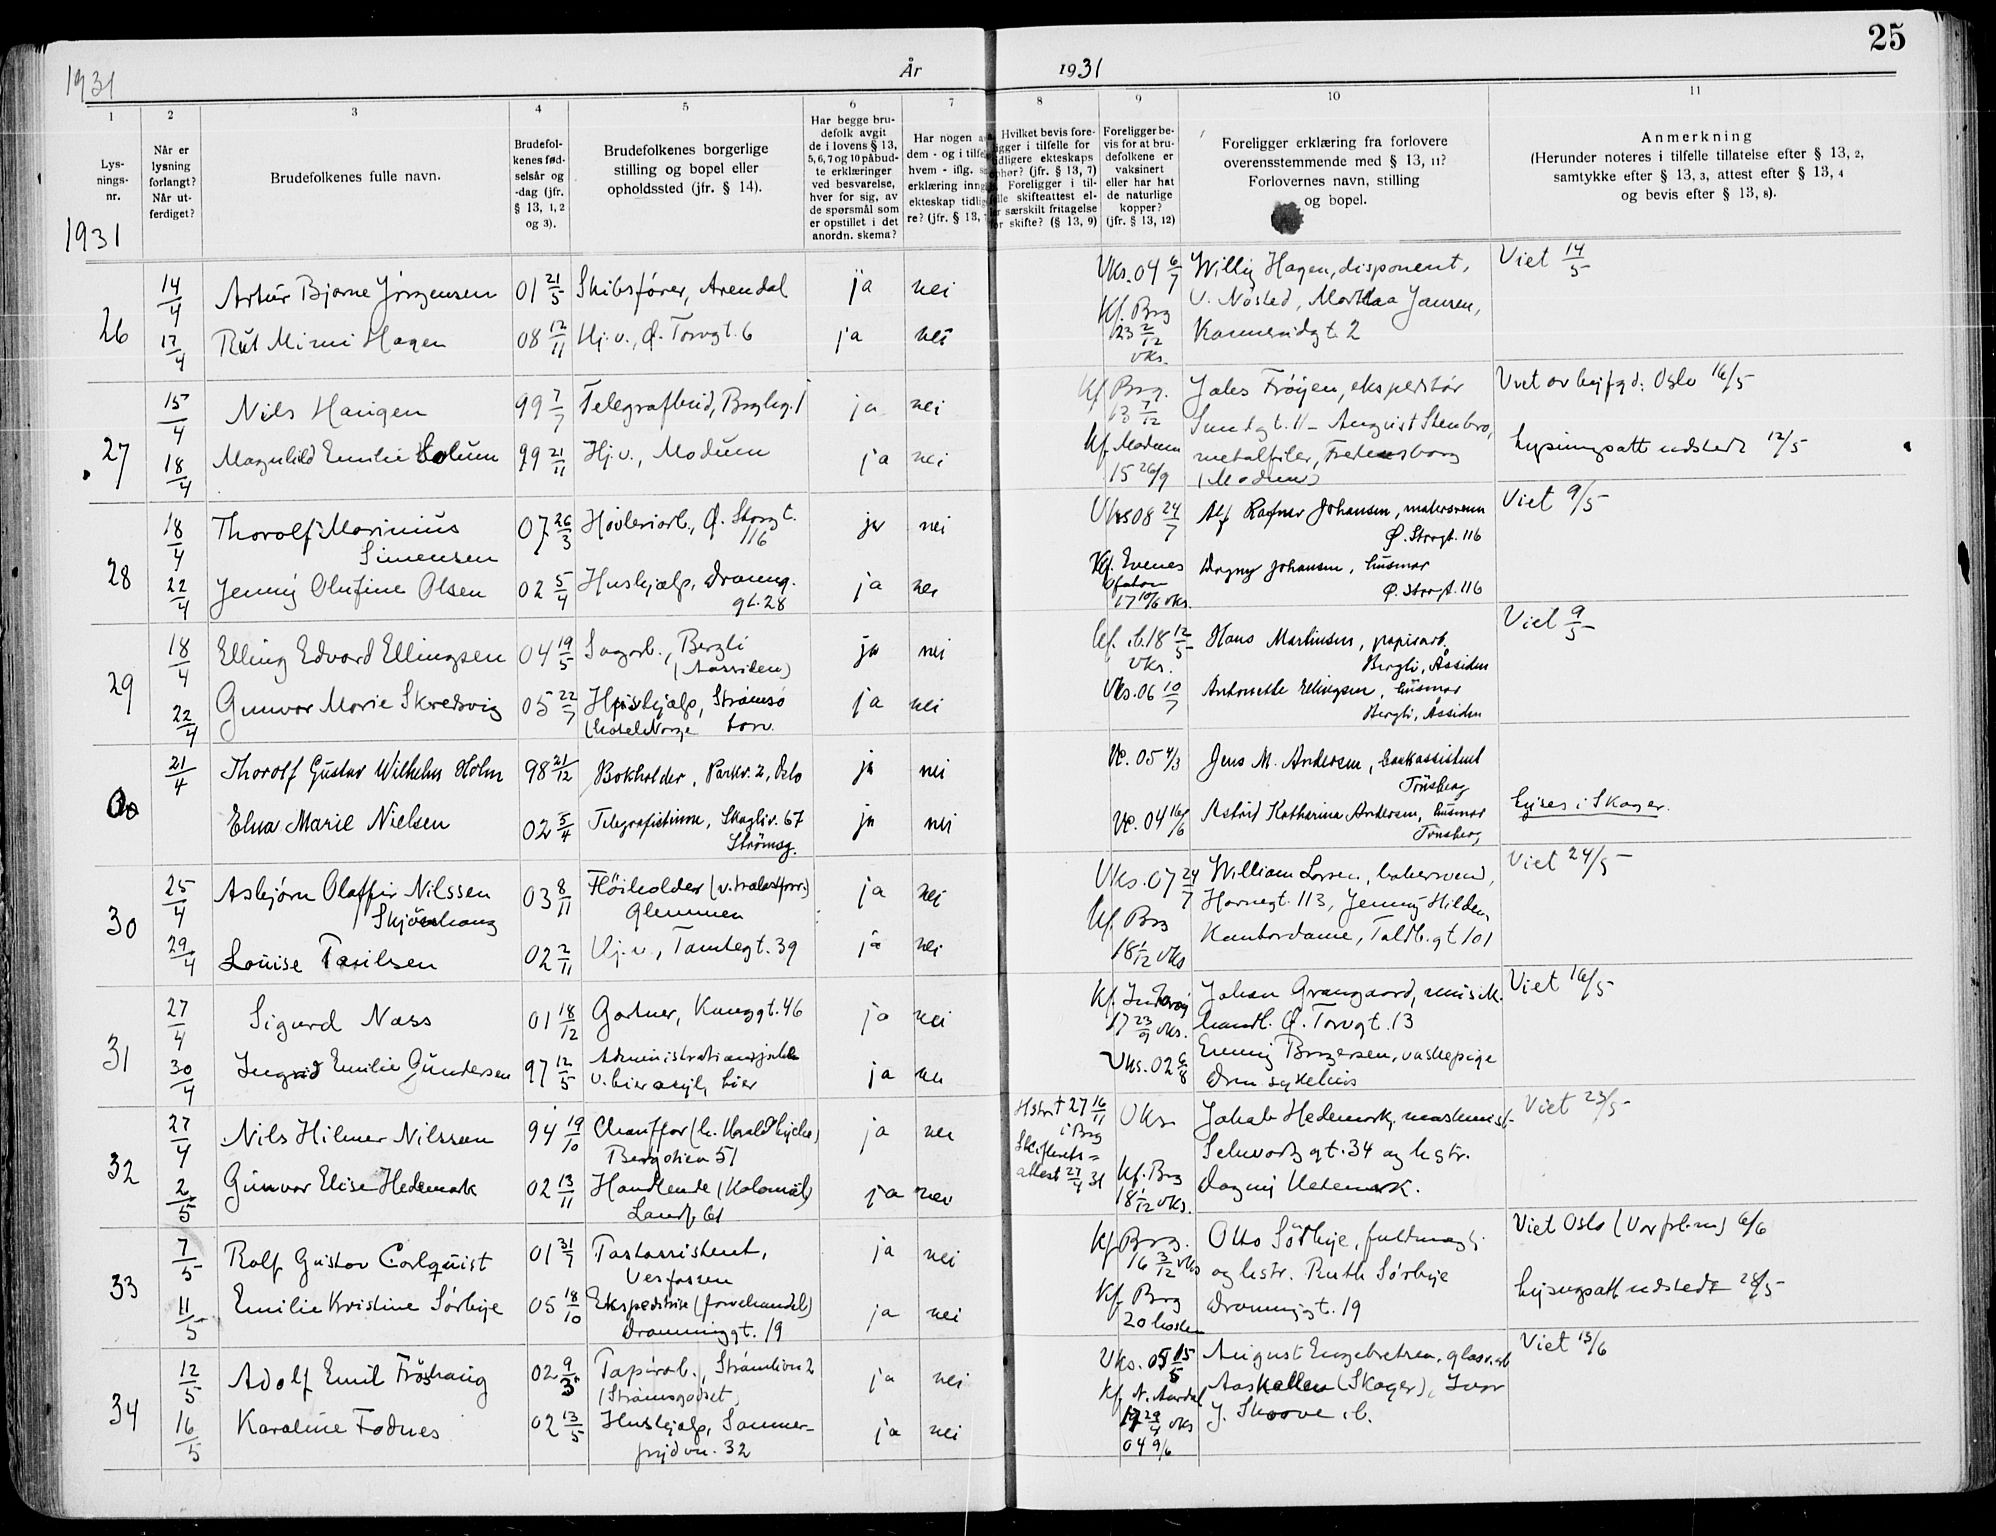 25
1931
År
1931
1
2
3
4
5
6
7
8
9
10
11
Lys-
nings-
nr.
Når er
lysning
forlangt?
Når ut-
ferdiget?
Brudefolkenes fulle navn.
Brudefol-
kenes fød-
selsår og
-dag (jfr.
§ 13, 1, 2
og 3).
Brudefolkenes borgerlige
stilling og bopel eller
opholdssted (jfr. § 14).
Har begge bru-
defolk avgit
de i lovens § 13,
5, 6, 7 og 10 påbud-
te erklæringer
ved besvarelse,
hver for sig, av
de spørsmål som
er opstillet i det
anordn. skema?
Har nogen
dem - og i tilfe
hvem - iflg.
erklæring inng
ekteskap tidlig
re? (jfr. § 13,
Hvilket bevis fore-
ligger i tilfelle for
tidligere ekteskaps
ophør? (jfr. § 13, 7)
Foreligger i til-
felle skifteattest el-
ler særskilt fritagelse
for skifte? (§ 13, 9)
Foreligger be-
vis for at bru-
defolkene er
vaksinert
eller har hat
de naturlige
kopper?
(jfr. § 13, 12)
Foreligger erklæring fra forlovere
overensstemmende med § 13, 11?
Forlovernes navn, stilling
og bopel.
Anmerkning
(Herunder noteres i tilfelle tillatelse efter § 13, 2,
samtykke efter § 13, 3, attest efter § 13, 4
og bevis efter § 13, 8).
1931
26
14/4 Artur Bjarne Jörgensen 01 21/5 Skibsfører, Arendal ja nei Vks. 04 6/7 Willy Hagen, disponent, Viet 14/5
v. Nösted, Marthaa Jansen,
17/4 Rut Mimi Hagen 08 12/11 Hj.v., Ø. Torvgt. 6 ja nei Kf. Brg 23 2/12 vks. 2
27
15/4 Nils Haugen 99 7/7 Telegrafbud, ja nei Kf Brg. 13 7/12 Jales Fröyen, ekspeditör Viet av byfgd: Oslo 16/5
Sundgt. 11 - August Stenbro,
18/4 Magnhild Emilie Solum 99 21/11 Hj.v., Modum ja nei Kf Modum 15 26/9 metalfiler, Fredensborg Lysningsatt udstedt 12/5
(Modum)
28
18/4 Thorolf Marinius 07 26/3 Høvleriarb., Ø. Storgt. ja nei Vks 08 24/7 Alf Ragnar Johansen, malersvenn Viet 9/5
Simensen 116 Ø. Storgt. 116
22/4 Jenny Olufine Olsen 02 5/4 Hushjælp, Dronng. ja nei Kf. Evenes Ofoten 17 10/6 vks. Dagny Johansen, husmor
gt. 28 Ø. Storgt. 116
29
18/4 Elling Edvard Ellingsen 04 19/5 Sagarb., Bergli ja nei Kf. ib. 18 12/5 vks. Hans Martinsen, papirarb, Viet 9/5
(Aassiden) Bergli, Åssiden
22/4 Gunvor Marie Skredsvig 05 22/7 Hushjælp, Strømsø ja nei Vks. 06 10/7 Antonette Ellingsen, husmor
(Hotel Norge torv. Bergli, Åssiden
21/4 Thorolf Gustav Wilhelm Holm 98 21/12 Bokholder, Parkv. 2, Oslo ja nei Vc. 05 4/3 Jens M. Andersen, bankassistent
Tönsberg
Elna Marie Nielsen 02 5/4 Telegrafistinne, Skogliv. 67 ja nei Vc. 04 16/6 Astrid Katharina Andersen, husmor Lyses i Skoger.
Strømsg. Tönsberg
30
25/4 Asbjørn Nilssen 03 8/11 Fløiholder ja nei Vks. 07 24/7 William Larsen, bakersvend, Viet 24/5
Glemmen Havnegt. 113, Jenny Hilden,
29/4 Louise 02 2/11 Hj.v., Tomtegt. 39 ja nei Kf. Brg 18 1/12 vks Kontordame, Toldb.gt 101
31
27/4 Sigurd Næss 01 18/12 Gartner, Konggt. 46 ja nei Kf. Inderøy 17 23/9 vks. Johan Grangaard, musik- Viet 16/5
handl. Ø. Torvgt. 13
30/4 Ingrid Emilie Gundersen 97 12/5 v. Lier asyl, Lier ja nei Vks. 02 6/8 Emmy Borgersen, vaskepige
Dram sykehus
32
27/4 Nils Hilmer Nilssen 94 19/10 Chauffør ja nei Hstrt 27 16/11 i Brg Vks Jakob Hedemark, maskinist Viet 23/5
51 Skifterets- Schwartz gt. 34 og hstr.
2/5 Gunvor Elise Hedemark 02 13/11 Handlende (Kolonial) ja nei attest 27/4 31 Kf. Brg 18 1/12 vks. Dagny Hedemark.
Landf. 61
33
7/5 Rolf Gustav Carlquist 01 31/7 Postassistent, ja nei Kf Brg. 16 3/12 vks Otto Sörbye, fuldmægt; Viet Oslo 6/6
Vesfossen og hstr. Ruth Sörbye
11/5 Emilie Kristine Sörbye 05 18/10 Ekspeditrise (farvehandel) ja nei Kf Brg 20 Dronninggt. 19 Lysngsatt udstedt 28/5
Dronninggt. 19
34
12/5 Adolf Emil Fröshaug 02 9/3 Papirarb., 2 ja nei Vks. 05 15/5 August Engebretsen, glassarb Viet 13/6
(Strømsgodset) Aaskollen (Skoger), Ivar
16/5 Karoline Fodnes 02 13/5 Hushjælp, Sommer- ja nei Kf. N. Aurdal 17 29/4 vks J. Skoove ib.
frydvn. 32 04 9/6